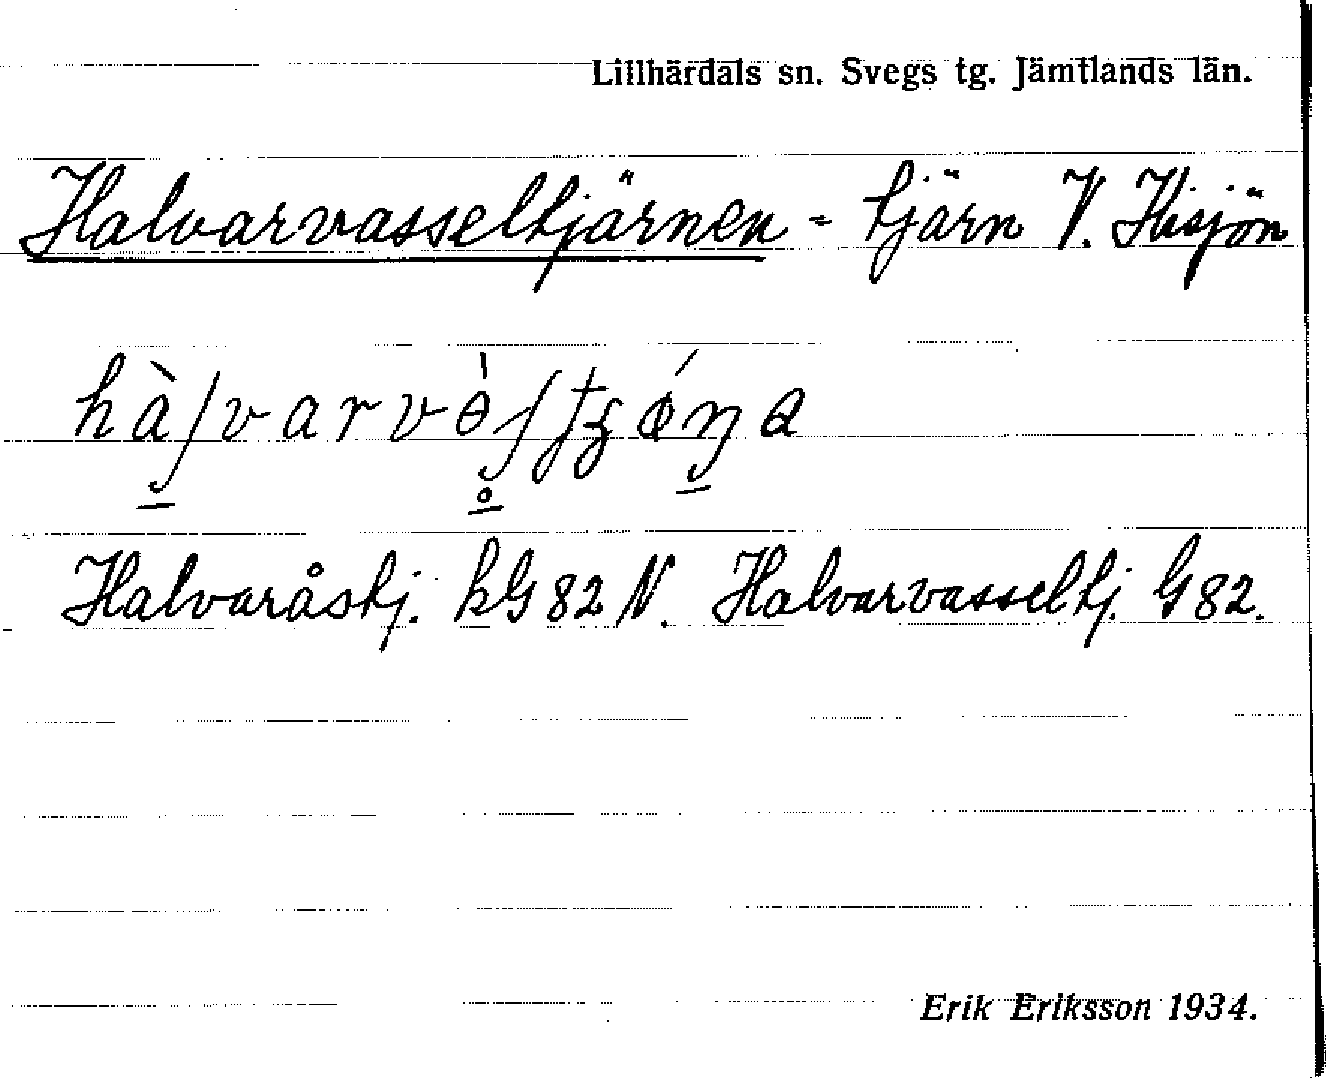 Lillhärdals sn. Svegs tg. Jämtlands län.
Halvarvasseltjärnen - tjärn V. Hisjön
Halvaråstj. kG 82 N. Halvarvasseltj. G 82.
Erik Eriksson 1934.